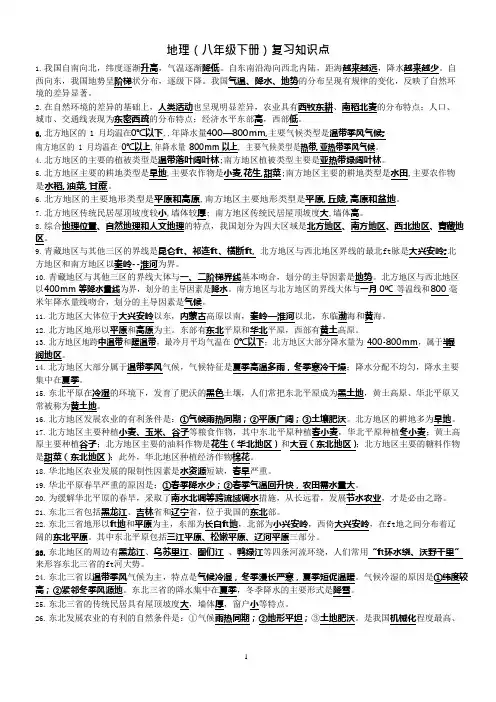 地理（八年级下册）复习知识点
1.我国自南向北，纬度逐渐升高，气温逐渐降低。自东南沿海向西北内陆，距海越来越远，降水越来越少。自
西向东，我国地势呈阶梯状分布，逐级下降。我国气温、降水、地势的分布呈现有规律的变化，反映了自然环
境的差异显著。
2.在自然环境的差异的基础上，人类活动也呈现明显差异，农业具有西牧东耕、南稻北麦的分布特点；人口、
城市、交通线表现为东密西疏的分布特点；经济水平东部高，西部低。
3.北方地区的 1 月均温在0℃以下,.年降水量400—800mm,主要气候类型是温带季风气候;
南方地区的 1 月均温在 0℃以上,年降水量 800mm以上，主要气候类型是热带,亚热带季风气候。
4.北方地区的主要的植被类型是温带落叶阔叶林;南方地区植被类型主要是亚热带绿阔叶林。
5.北方地区主要的耕地类型是旱地,主要农作物是小麦,花生,甜菜;南方地区主要的耕地类型是水田,主要农作物
是水稻,油菜,甘蔗。
6.北方地区的主要地形类型是平原和高原,南方地区主要地形类型是平原,丘陵,高原和盆地。
7.北方地区传统民居屋顶坡度较小,墙体较厚；南方地区传统民居屋顶坡度大,墙体高。
8.综合地理位置、自然地理和人文地理的特点，我国划分为四大区域是北方地区、南方地区、西北地区、青藏地
区。
9.青藏地区与其他三区的界线是昆仑ft、祁连ft、横断ft，北方地区与西北地区界线的最北ft脉是大兴安岭;北
方地区和南方地区以秦岭--淮河为界。
10.青藏地区与其他三区的界线大体与一、二阶梯界线基本吻合，划分的主导因素是地势。北方地区与西北地区
以400mm等降水量线为界，划分的主导因素是降水。南方地区与北方地区的界线大体与一月 0ºC 等温线和800 毫
米年降水量线吻合，划分的主导因素是气候。
11.北方地区大体位于大兴安岭以东，内蒙古高原以南，秦岭—淮河以北，东临渤海和黄海。
12.北方地区地形以平原和高原为主。东部有东北平原和华北平原，西部有黄土高原。
13.北方地区地跨中温带和暖温带，最冷月平均气温在 0℃以下；北方地区大部分降水量为 400-800mm，属于半湿
润地区。
14.北方地区大部分属于温带季风气候，气候特征是夏季高温多雨，冬季寒冷干燥；降水分配不均匀，降水主要
集中在夏季。
15.东北平原在冷湿的环境下，发育了肥沃的黑色土壤，人们常把东北平原成为黑土地，黄土高原、华北平原又
常被称为黄土地。
16.北方地区发展农业的有利条件是：①气候雨热同期；②平原广阔；③土壤肥沃。北方地区的耕地多为旱地。
17.北方地区主要种植小麦、玉米、谷子等粮食作物，其中东北平原种植春小麦，华北平原种植冬小麦；黄土高
原主要种植谷子；北方地区主要的油料作物是花生（华北地区）和大豆（东北地区）；北方地区主要的糖料作物
是甜菜（东北地区）；此外，华北地区种植经济作物棉花。
18.华北地区农业发展的限制性因素是水资源短缺，春旱严重。
19.华北平原春旱严重的原因是：①春季降水少；②春季气温回升快，农田需水量大。
20.为缓解华北平原的春旱，采取了南水北调等跨流域调水措施，从长远看，发展节水农业，才是必由之路。
21.东北三省包括黑龙江、吉林省和辽宁省，位于我国的东北部。
22.东北三省地形以ft地和平原为主，东部为长白ft地，北部为小兴安岭，西倚大兴安岭，在ft地之间分布着辽
阔的东北平原。其中东北平原包括三江平原、松嫩平原、辽河平原三部分。
23.东北地区的周边有黑龙江、乌苏里江、图们江 、鸭绿江等四条河流环绕，人们常用“ft环水绕、沃野千里”
来形容东北三省的ft河大势。
24.东北三省以温带季风气候为主，特点是气候冷湿，冬季漫长严寒，夏季短促温暖。气候冷湿的原因是①纬度较
高；②紧邻冬季风源地。东北三省的降水集中在夏季，冬季降水的主要形式是降雪。
25.东北三省的传统民居具有屋顶坡度大，墙体厚，窗户小等特点。
26.东北发展农业的有利的自然条件是：①气候雨热同期；②地形平坦；③土地肥沃。是我国机械化程度最高、
1